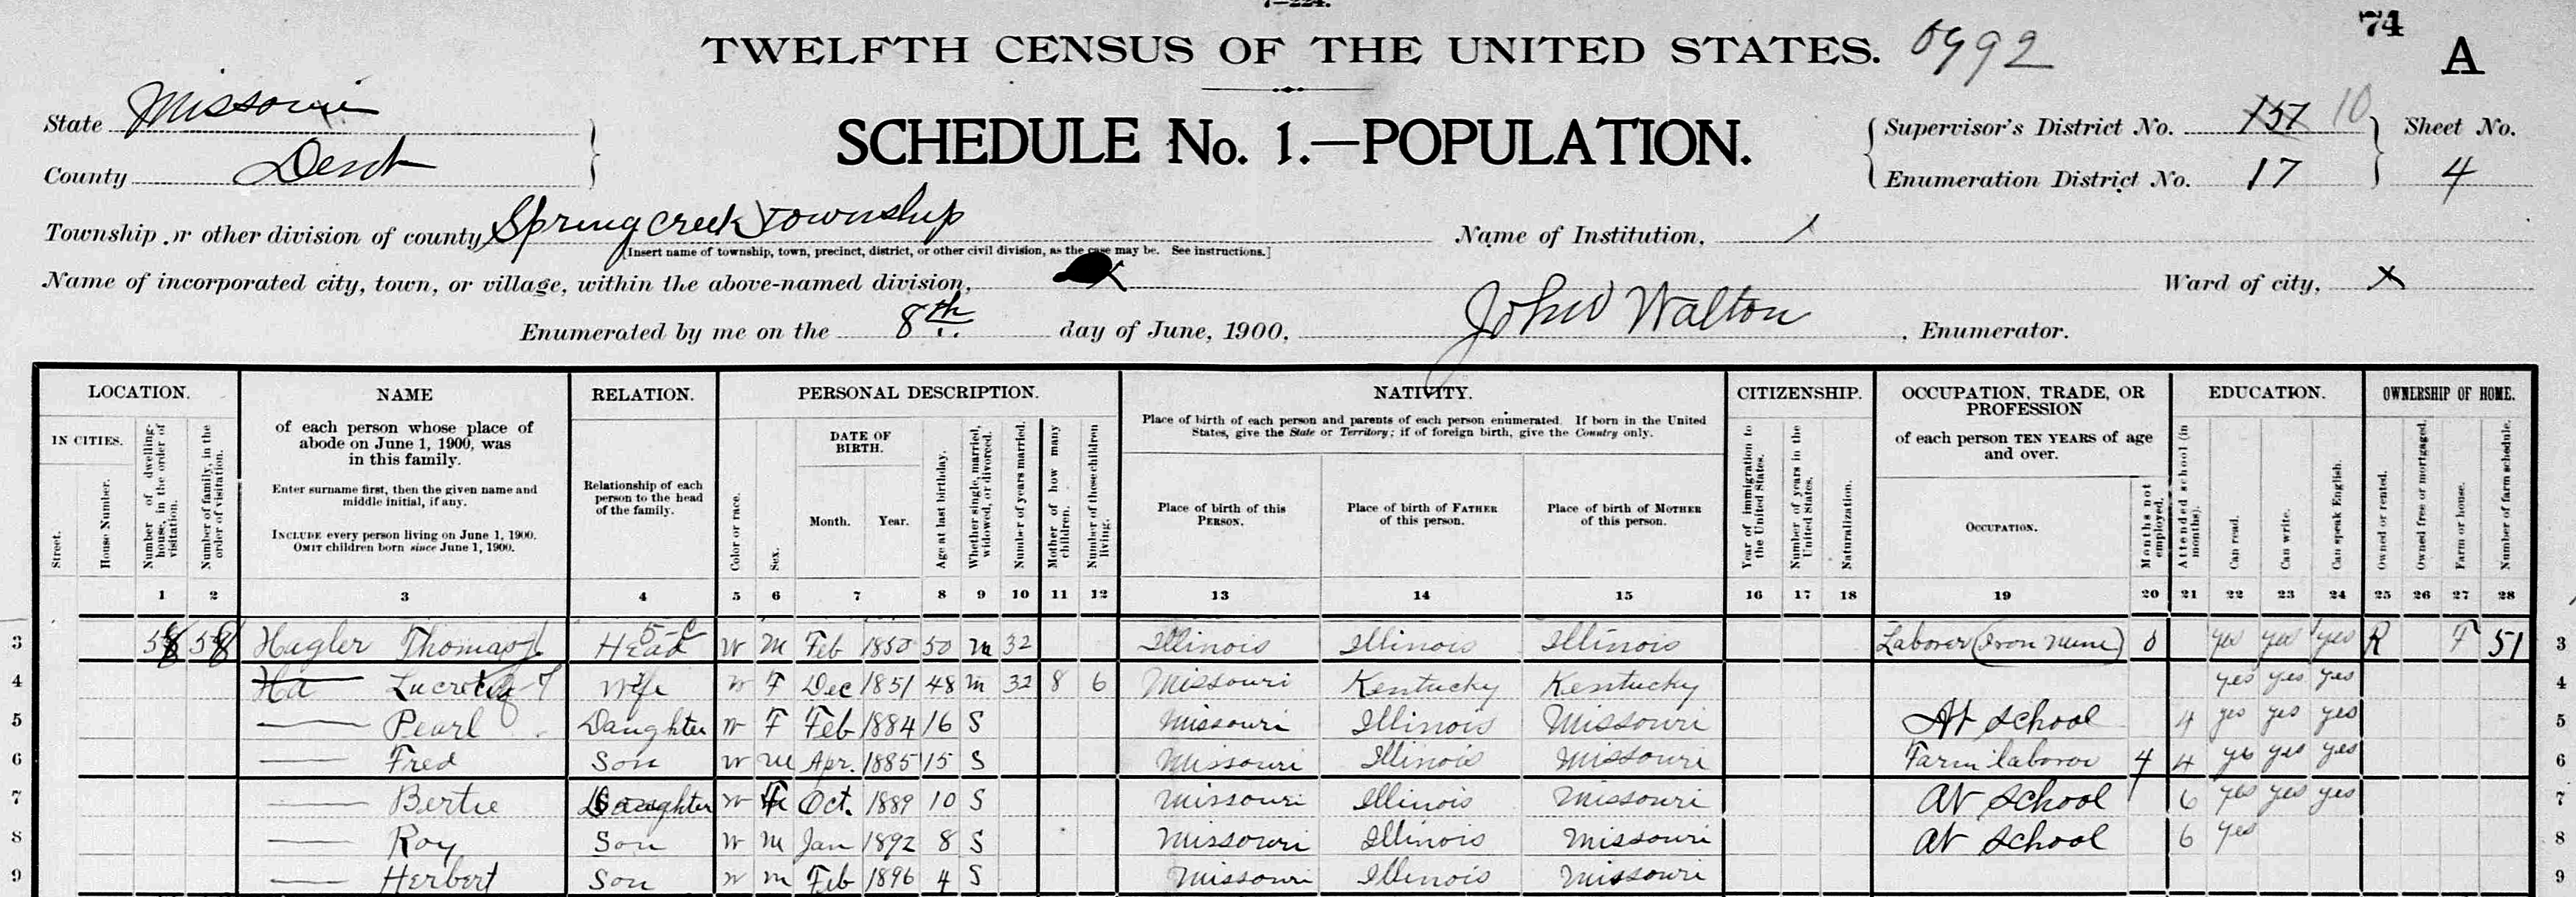 7—224.
TWELFTH CENSUS OF THE UNITED STATES.
74
A
State Missouri
County Dent
SCHEDULE No. 1.—POPULATION.
Supervisor's District No. 151 10
Enumeration District No. 17
Sheet No.
4
Township or other division of county Spring Creek Township
[Insert name of township, town, precinct, district, or other civil division, as the case may be. See instructions.]
Name of Institution,
Name of incorporated city, town, or village, within the above-named division, X
Ward of city, X
Enumerated by me on the 8th day of June, 1900, John Walton, Enumerator.
LOCATION.
IN CITIES.
Street.
House Number.
Number of dwelling-house, in the order of visitation.
Number of family, in the order of visitation.
NAME
of each person whose place of
abode on June 1, 1900, was
in this family.
Enter surname first, then the given name and
middle initial, if any.
INCLUDE every person living on June 1, 1900.
OMIT children born since June 1, 1900.
RELATION.
Relationship of each
person to the head
of the family.
PERSONAL DESCRIPTION.
Color or race.
Sex.
DATE OF
BIRTH.
Month. Year.
Age at last birthday.
Whether single, married, widowed, or divorced.
Number of years married.
Mother of how many children.
Number of these children living.
NATIVITY.
Place of birth of each person and parents of each person enumerated. If born in the United
States, give the State or Territory; if of foreign birth, give the Country only.
Place of birth of this
PERSON.
Place of birth of FATHER
of this person.
Place of birth of MOTHER
of this person.
CITIZENSHIP.
Year of immigration to the United States.
Number of years in the United States.
Naturalization.
OCCUPATION, TRADE, OR
PROFESSION
of each person TEN YEARS of age
and over.
OCCUPATION.
Months not employed.
EDUCATION.
Attended school (in months).
Can read.
Can write.
Can speak English.
OWNERSHIP OF HOME.
Owned or rented.
Owned free or mortgaged.
Farm or house.
Number of farm schedule.
1 2 3 4 5 6 7 8 9 10 11 12 13 14 15 16 17 18 19 20 21 22 23 24 25 26 27 28
3 58 58 Hagler Thomas J Head W M Feb 1850 50 m 32 Illinois Illinois Illinois Laborer (Iron Mine) 0 yes yes yes R F 51 3
4 Ha Lucretia F Wife W F Dec 1851 48 m 32 8 6 Missouri Kentucky Kentucky yes yes yes 4
5 — Pearl Daughter W F Feb 1884 16 S Missouri Illinois Missouri At School 4 yes yes yes 5
6 — Fred Son W M Apr. 1885 15 S Missouri Illinois Missouri Farm laborer 4 4 yes yes yes 6
7 — Bertie Daughter W F Oct. 1889 10 S Missouri Illinois Missouri At School 6 yes yes yes 7
8 — Roy Son W M Jan 1892 8 S Missouri Illinois Missouri At School 6 yes 8
9 — Herbert Son W M Feb 1896 4 S Missouri Illinois Missouri 9